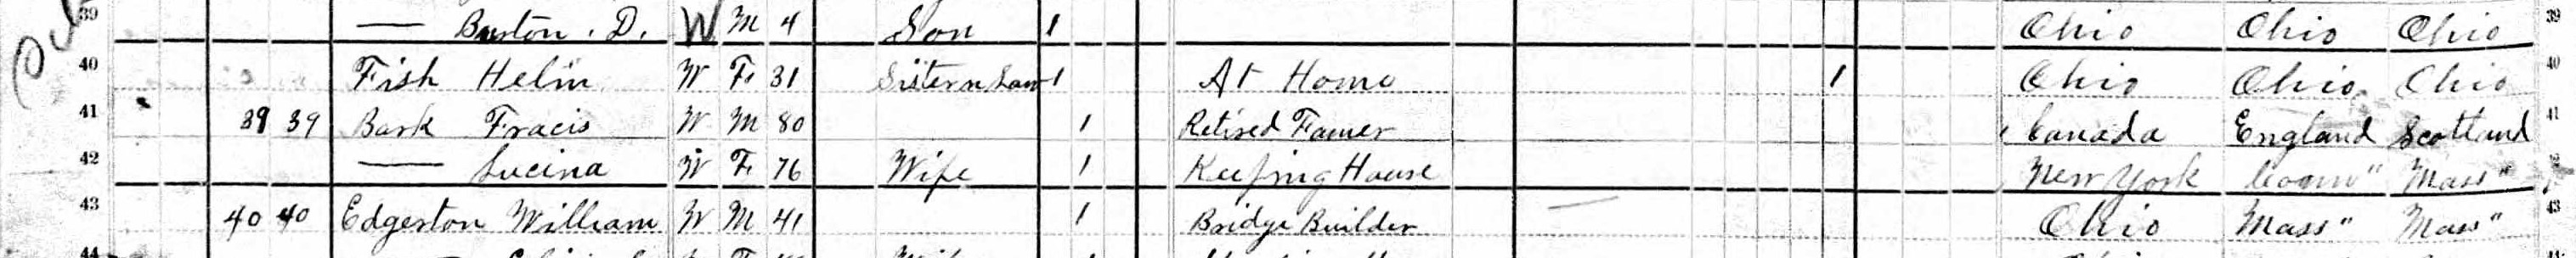 39 — Burton . D. W M 4 Son 1 Ohio Ohio Ohio 39
40 Fish Helin W F. 31 Sister n Law 1 At Home 1 Ohio Ohio Ohio 40
41 39 39 Bark Fracis W M 80 1 Retired Famer Canada England Scotland 41
42 — Lucina W F. 76 Wife 1 Keeping House New York Conn" Mass"
43 40 40 Edgerton William W M 41 1 Bridge Builder Ohio Mass" Mass" 43
44